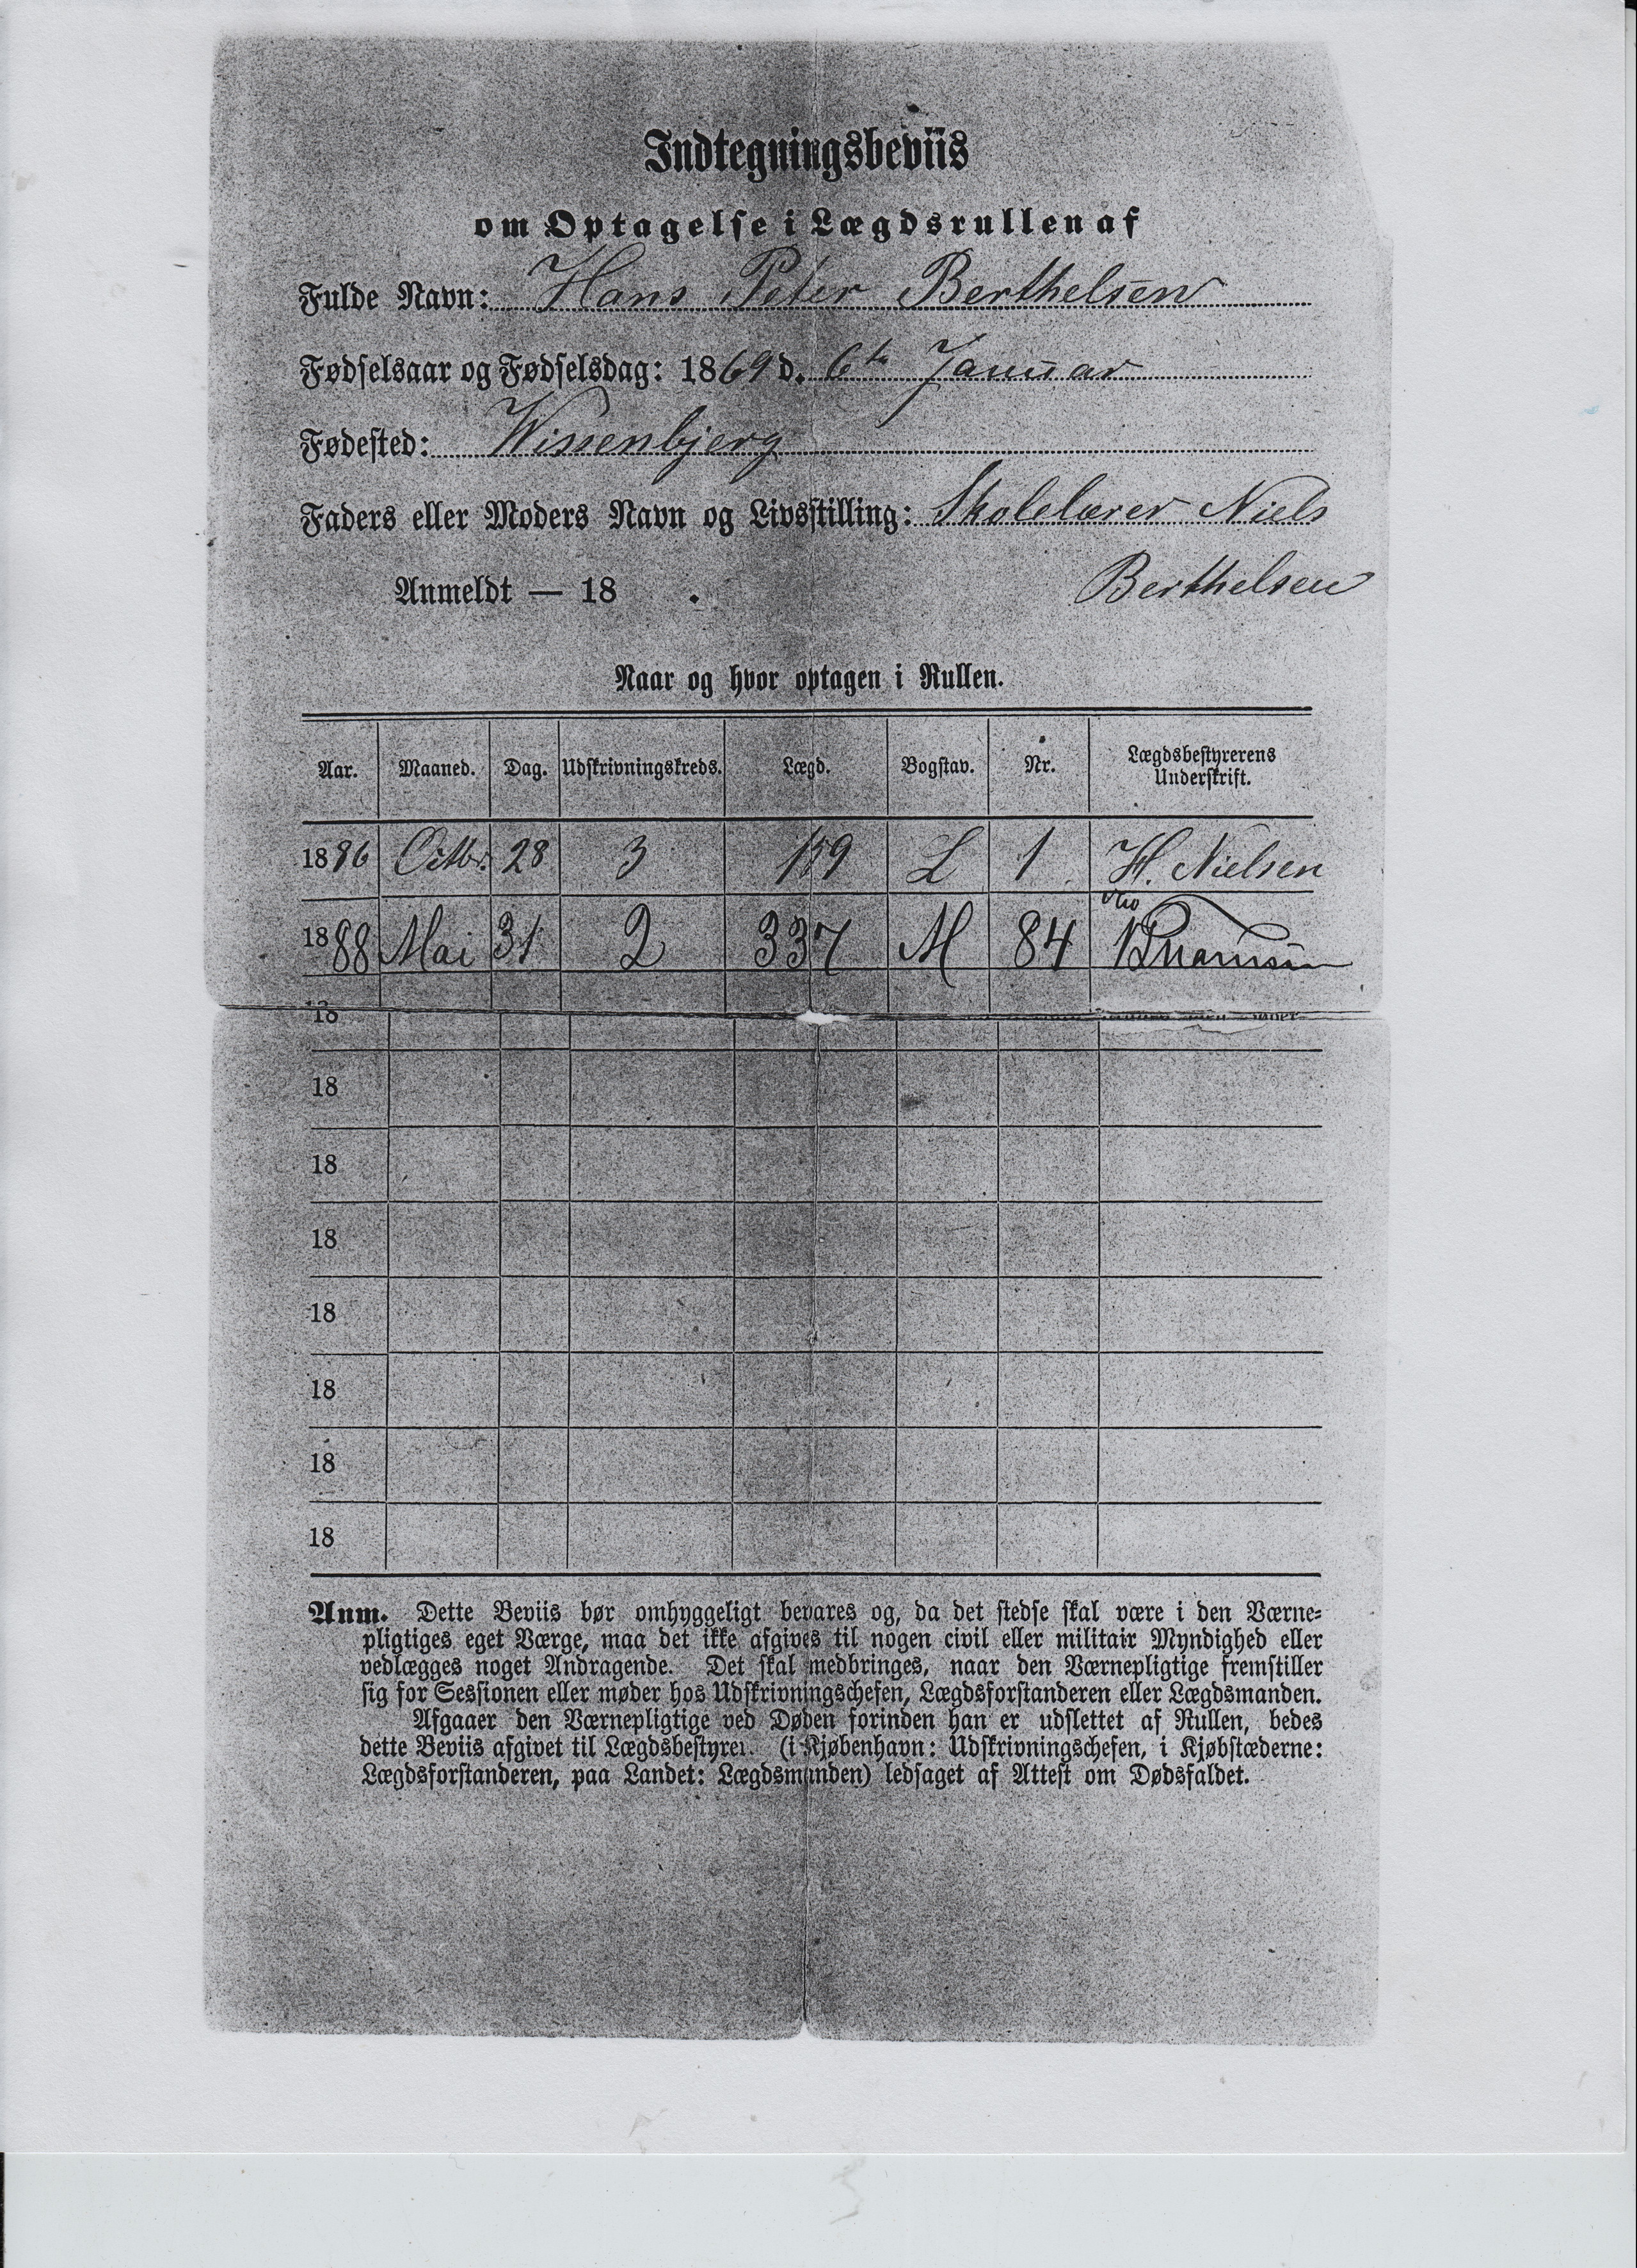 Indtegningsbeviis
om Optagelse i Lægdsrullen af
Fulde Navn: Hans Peter Berthelsen
Fødselsaar og Fødselsdag: 1869 d. 6te Januar
Fødested: Wissenbjerg
Faders eller Moders Navn og Livsstilling: Skolelærer Niels
Anmeldt — 18 . Berthelsen
Naar og hvor optagen i Rullen.
Aar. Maaned. Dag. Udskrivningskreds. Lægd. Bogstav. Nr. Lægdsbestyrerens Underskrift.
1886 Octbr. 28 3 159 L 1 H. Nielsen
1888 Mai 31 2 337 M 84
18
18
18
18
18
18
18
18
Anm. Dette Beviis bør omhyggeligt bevares og, da det stedse skal være i den Værne-
pligtiges eget Værge, maa det ikke afgives til nogen civil eller militair Myndighed eller
vedlægges noget Andragende. Det skal medbringes, naar den Værnepligtige fremstiller
sig for Sessionen eller møder hos Udskrivningschefen, Lægdsforstanderen eller Lægdsmanden.
Afgaaer den Værnepligtige ved Døden forinden han er udslettet af Rullen, bedes
dette Beviis afgivet til Lægdsbestyrer. (i Kjøbenhavn: Udskrivningschefen, i Kjøbstæderne:
Lægdsforstanderen, paa Landet: Lægdsmanden) ledsaget af Attest om Dødsfaldet.